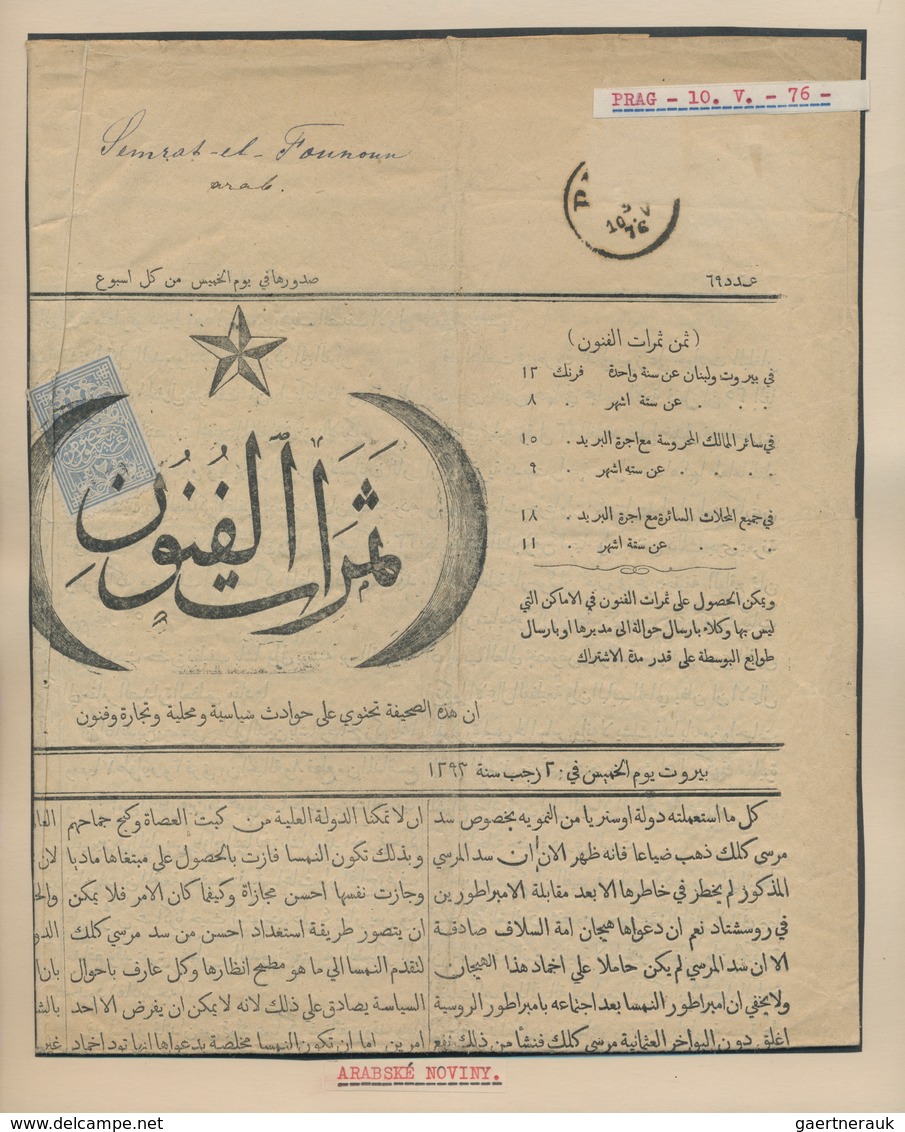 PRAG - 10. V. - 76 -
Semrat-el-Founoun
arab.
P
10 V
76
عدد ٦٩
صدورها في يوم الخميس من كل اسبوع
(ثمن ثمرات الفنون)
في بيروت ولبنان عن سنة واحدة فرنك ١٢
. . . عن ستة اشهر . ٨
في سائر الممالك المحروسة مع اجرة البريد . ١٥
. . . . عن سته اشهر . ٩
في جميع المحلات السائرة مع اجرة البريد . ١٨
. . . . عن ستة اشهر . ١١
ويمكن الحصول على ثمرات الفنون في الاماكن التي
ليس بها وكلاء بارسال حوالة الى مديرها او بارسال
طوابع البوسطة على قدر مدة الاشتراك
ثمرات الفنون
ان هذه الصحيفة تحتوي على حوادث سياسية ومحلية وتجارة وفنون
بيروت يوم الخميس في ٢٠ رجب سنة ١٢٩٣
كل ما استعملته دولة اوستريا من التمويه بخصوص سد
مرسى كلك ذهب ضياعا فانه ظهر الان ان سد المرسي
المذكور لم يخطر في خاطرها الا بعد مقابلة الامبراطورين
في روسشتاد نعم ان دعواها هيجان امة السلاف صادقة
الا ان سد المرسي لم يكن حاملا على اخماد هذا الهيجان
ولا يخفي ان امبراطور النمسا بعد اجتماعه بامبراطور الروسية
اغلق دون البواخر العثمانية مرسي كلك فنشأ من ذلك نفع
ان لا تمكنا الدولة العلية من كبت العصاة وكبح جماحهم
وبذلك تكون النمسا فازت بالحصول على مبتغاها ماديا
وجازت نفسها احسن مجازاة وكيفما كان الامر فلا يمكن
ان يتصور طريقة استعداد احسن من سد مرسي كلك
لتقدم النمسا الي ما هو مطمح انظارها وكل عارف باحوال
السياسة يصادق على ذلك لانه لا يمكن ان يفرض الا احد
امرين اما ان تكون النمسا مخلصة بدعواها انها تود اخماد
لان
الدو
بان
غير
ARABSKÉ NOVINY.
delcampe.net
gaertnerauk